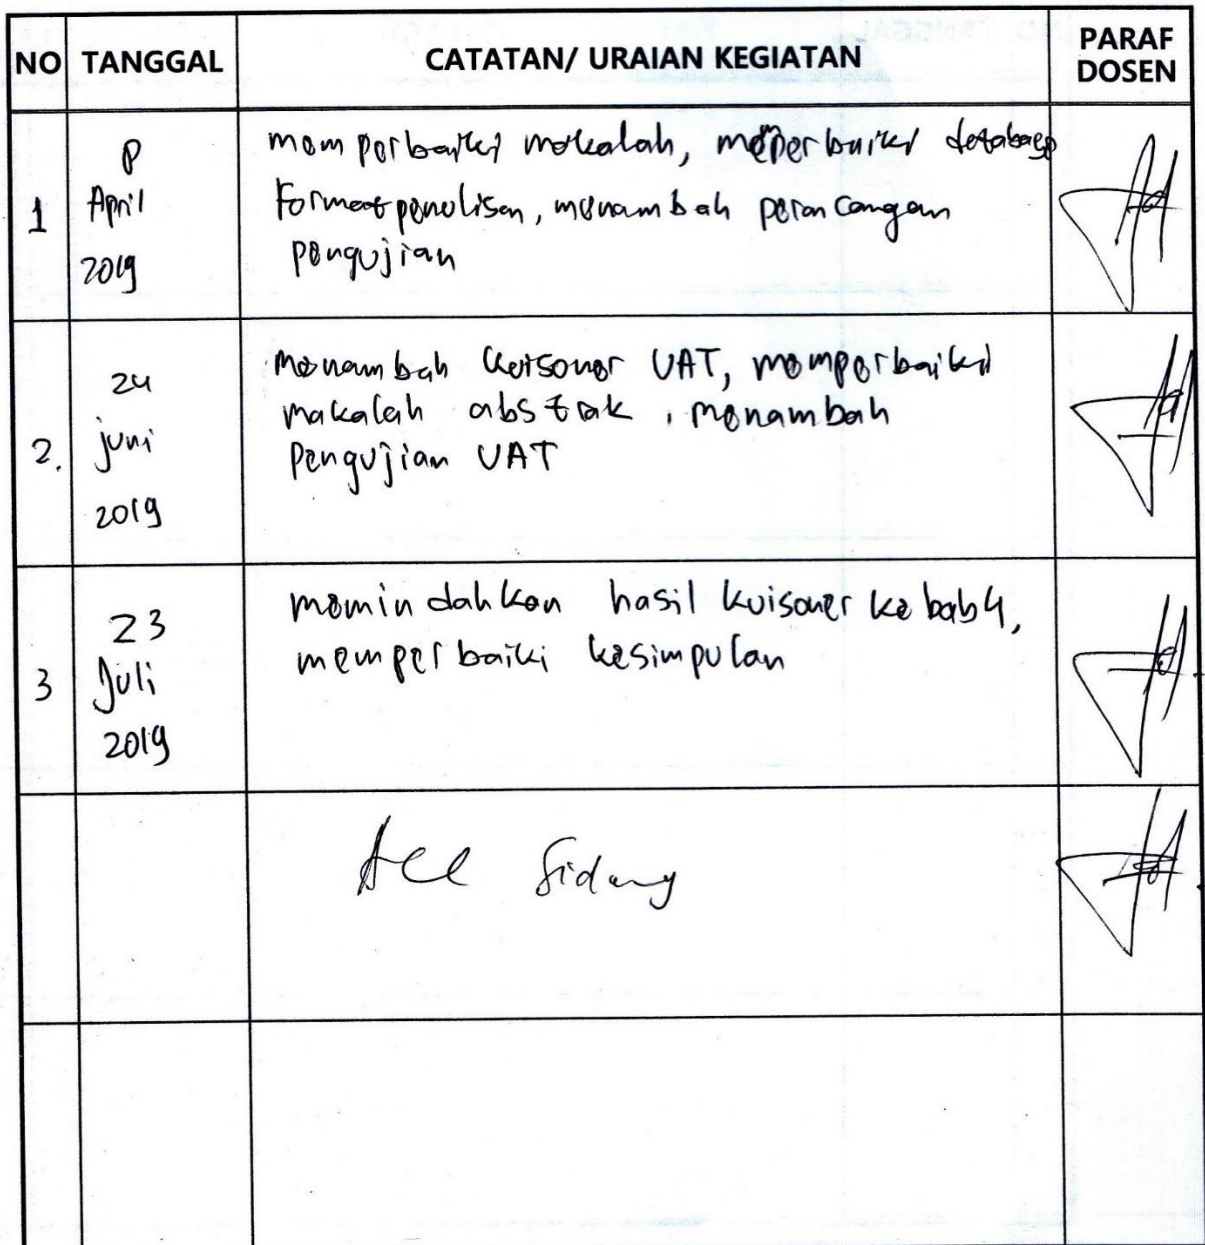 NO TANGGAL CATATAN/ URAIAN KEGIATAN PARAF DOSEN
1
April
2019
memperbaiki makalah, meperbaiki database
Format penulisan, menambah perancangan
pengujian
2.
24
juni
2019
Menambah kuisoner UAT, memperbaiki
makalah abstrak, menambah
Pengujian UAT
3
23
Juli
2019
memindahkan hasil kuisoner ke bab 4,
memperbaiki kesimpulan
Acc Sidang